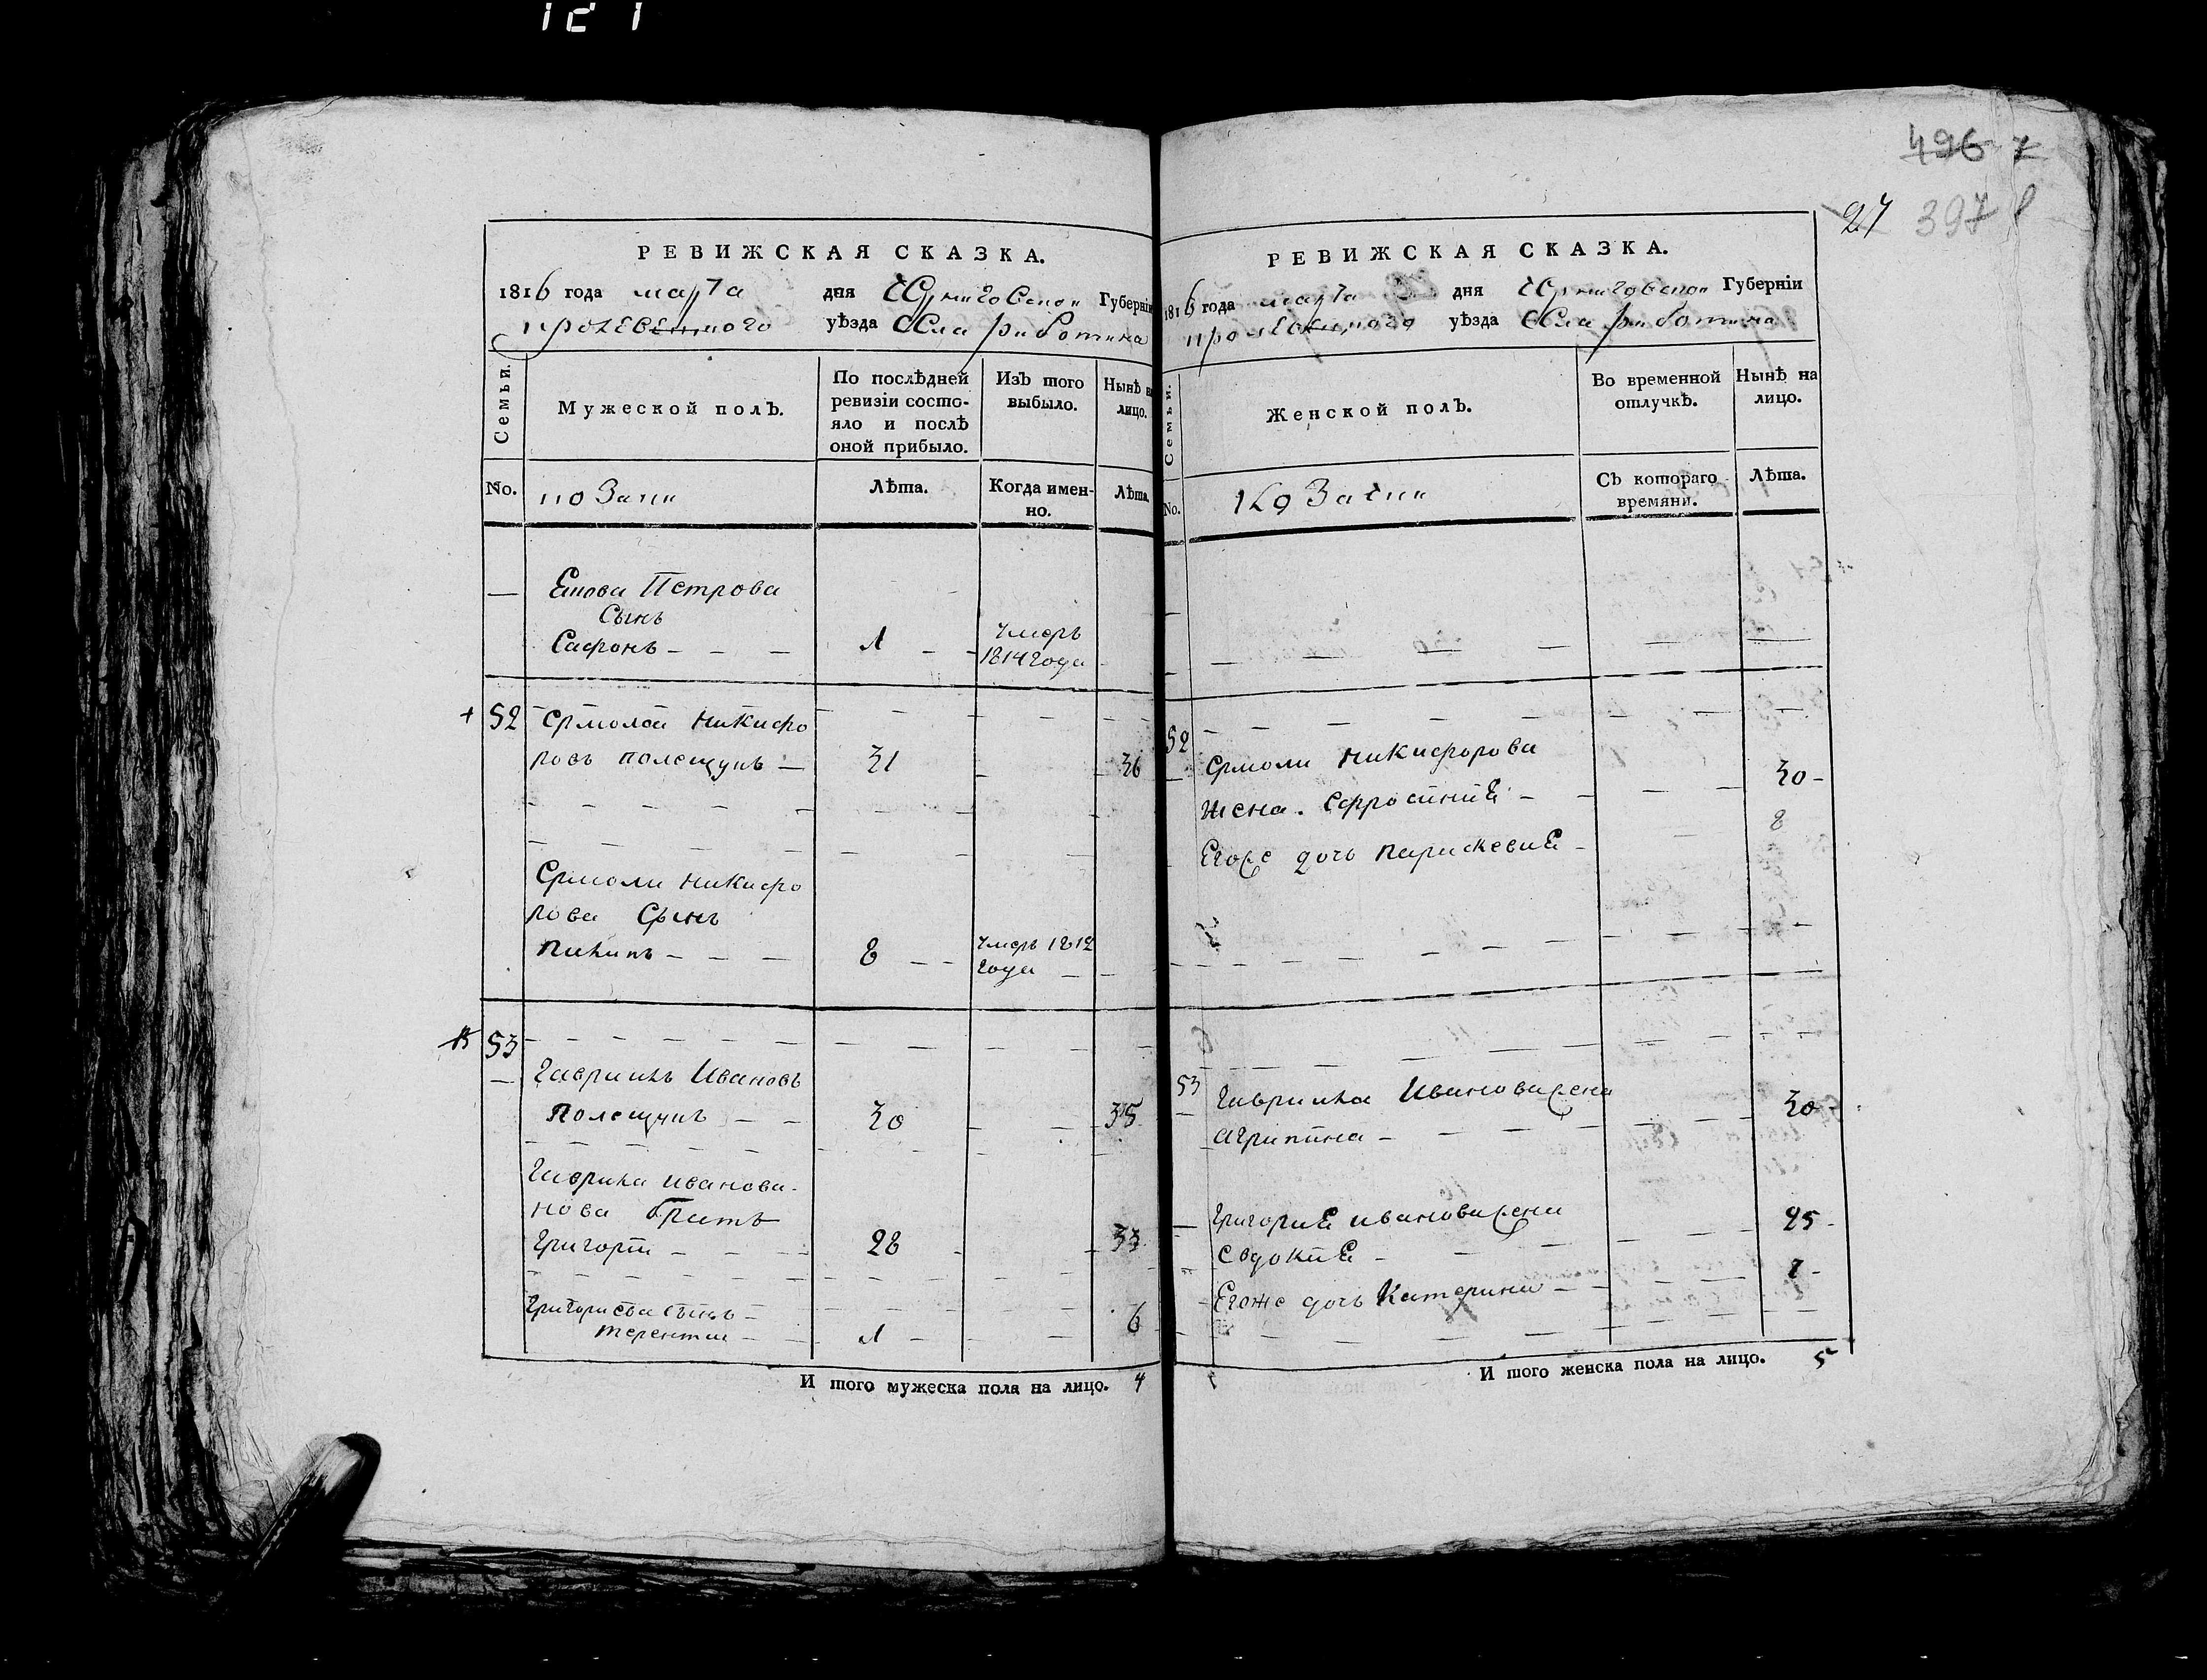 121
496 7
27 397
РЕВИЖСКАЯ СКАЗКА.
1816 года марта дня Черниговской Губернїи
кролевецкого уѣзда Села риботина
Семьи.
Мужеской полъ.
По послѣдней ревизїи состояло и послѣ оной прибыло.
Изъ того выбыло.
Нынѣ на лицо.
No.
Лѣта.
Когда именно.
Лѣта.
Петрова
Сынъ
Сафонъ 1 умеръ
1814 года
52 Ермолай Никифо
ровъ полещукъ 31 36
Ермоли Никифо
рова Сынъ
умеръ 1812
8 года
53
Гаврило Ивановъ
Полещукъ 30 35
Гаврила иванова
нова братъ
Григорїй 28 33
Григориева сынъ
терентий 1 6
И того мужеска пола на лицо. 4
РЕВИЖСКАЯ СКАЗКА.
1816 года марта дня Черниговской Губернїи
кролевецкого уѣзда Села риботина
Семьи.
Женской полъ.
Во временной отлучкѣ.
Нынѣ на лицо.
No.
Съ котораго времяни.
Лѣта.
52
Ермоли Никифорова
жена Ефросинїя 30
Егоже дочь параскевия 8
53 Гаврила Иванова жена
агрипина 30
Григория иванова жена
евдокия 25
Егоже дочь Катерина
И того женска пола на лицо. 5